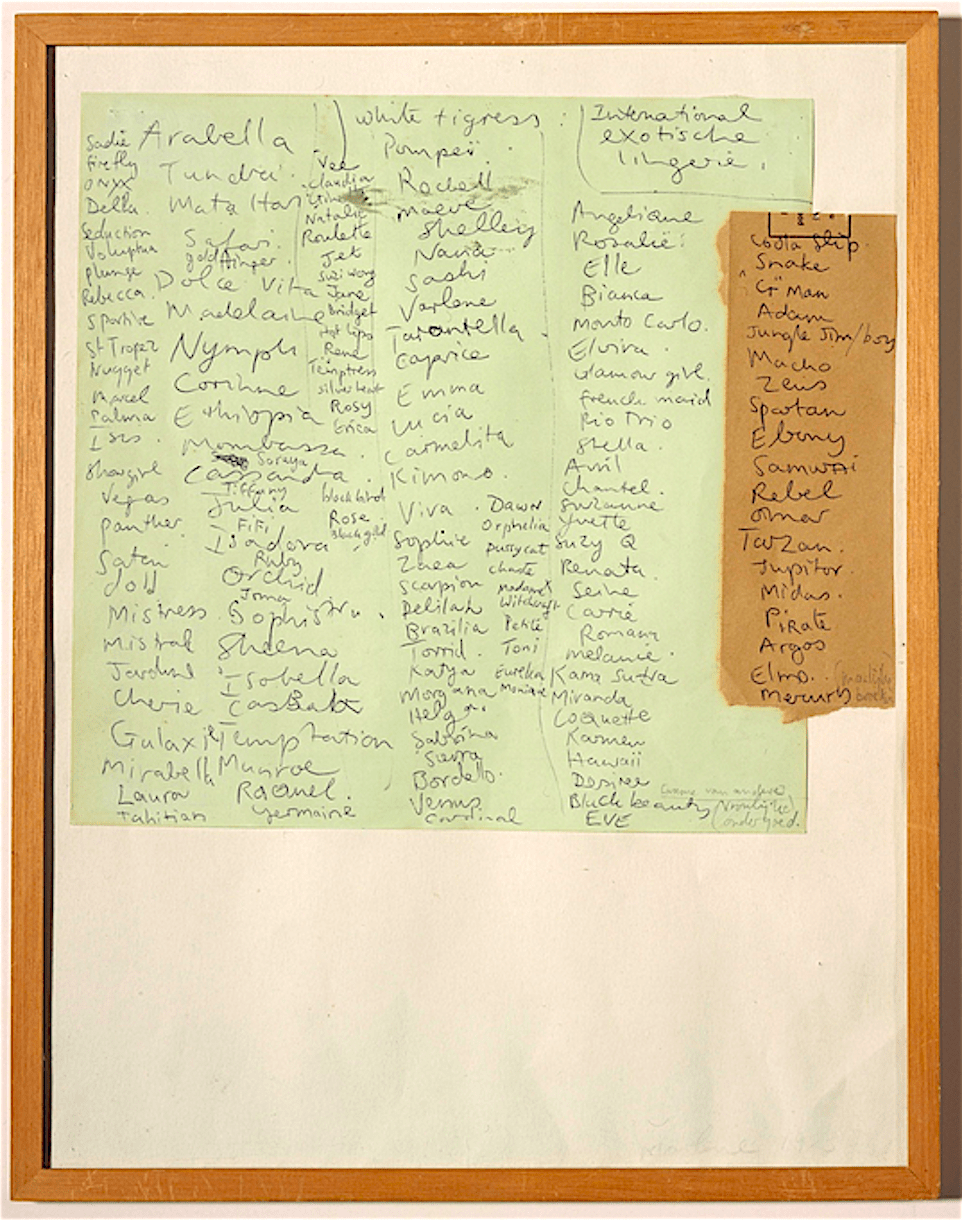 Sadie
Firefly
ONYX
Della
Seduction
Voluptua
plunge
Rebecca
Sportive
St Tropez
Nugget
Marcel
Palma
Isis
Showgirl
Vegas
panther
Satin
Doll
Mistress
Mistral
Cherie
Galaxie
Mirabella
Laura
Tahitian
Arabella
Tundra
Mata Hari
Safari
goldfinger
Dolce Vita
Madelaine
Nymph
Corinne
Ethiopia
Mombassa
Soraya
Cassandra
Tiffany
Julia
FiFi
Isadora
Ruby
Orchid
Sophistra
Sheena
Isobella
Temptation
Munroe
Raquel
Germaine
Vee
Claudia
Natalie
Roulette
Jet
Suzi wong
Jane
Bridget
Hot lips
Rene
Temptress
Silverheart
Rosy
Erica
blackbird
Rose
Black gold
white tigress
Pompeii
Rachell
Maeve
Shelley
Navia
Sashi
Varlene
Tarantella
Caprice
Emma
Lucia
Carmelita
Kimono
Viva
Sophie
Zaea
Scorpion
Delilah
Brazilia
Torrid
Katya
Morgana
Helga
Sabrina
Sierra
Bordello
Venus
Cardinal
Dawn
Orphelia
pussycat
Madame
Witchcraft
Petite
Toni
Eureka
Monique
International
exotische
lingerie
Angelique
Rosalie
Elle
Bianca
Monto Carlo
Elvira
Glamour girl
french maid
Rio Trio
Stella
Avril
Chantel
Suzanne
Yvette
Suzy Q
Renata
Seine
Carrie
Romany
Melanie
Kama Sutra
Miranda
Coquette
Karmen
Hawaii
Desiree
Black beauty
EVE
Coola Slip
Snake
"G" Man
Adam
Jungle Jim/boy
Macho
Zeus
Spartan
Ebony
Samurai
Rebel
Omar
Tarzan
Jupitor
Midas
Pirate
Argos
Elmo
Mercury